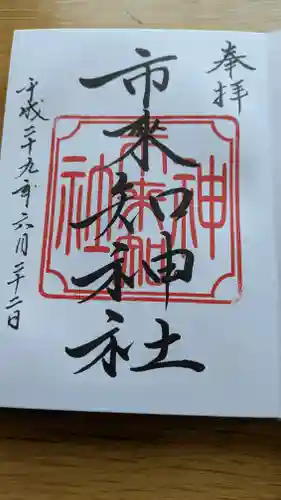 奉拝
市来知神社
市来知神社
平成二十九年六月二十二日